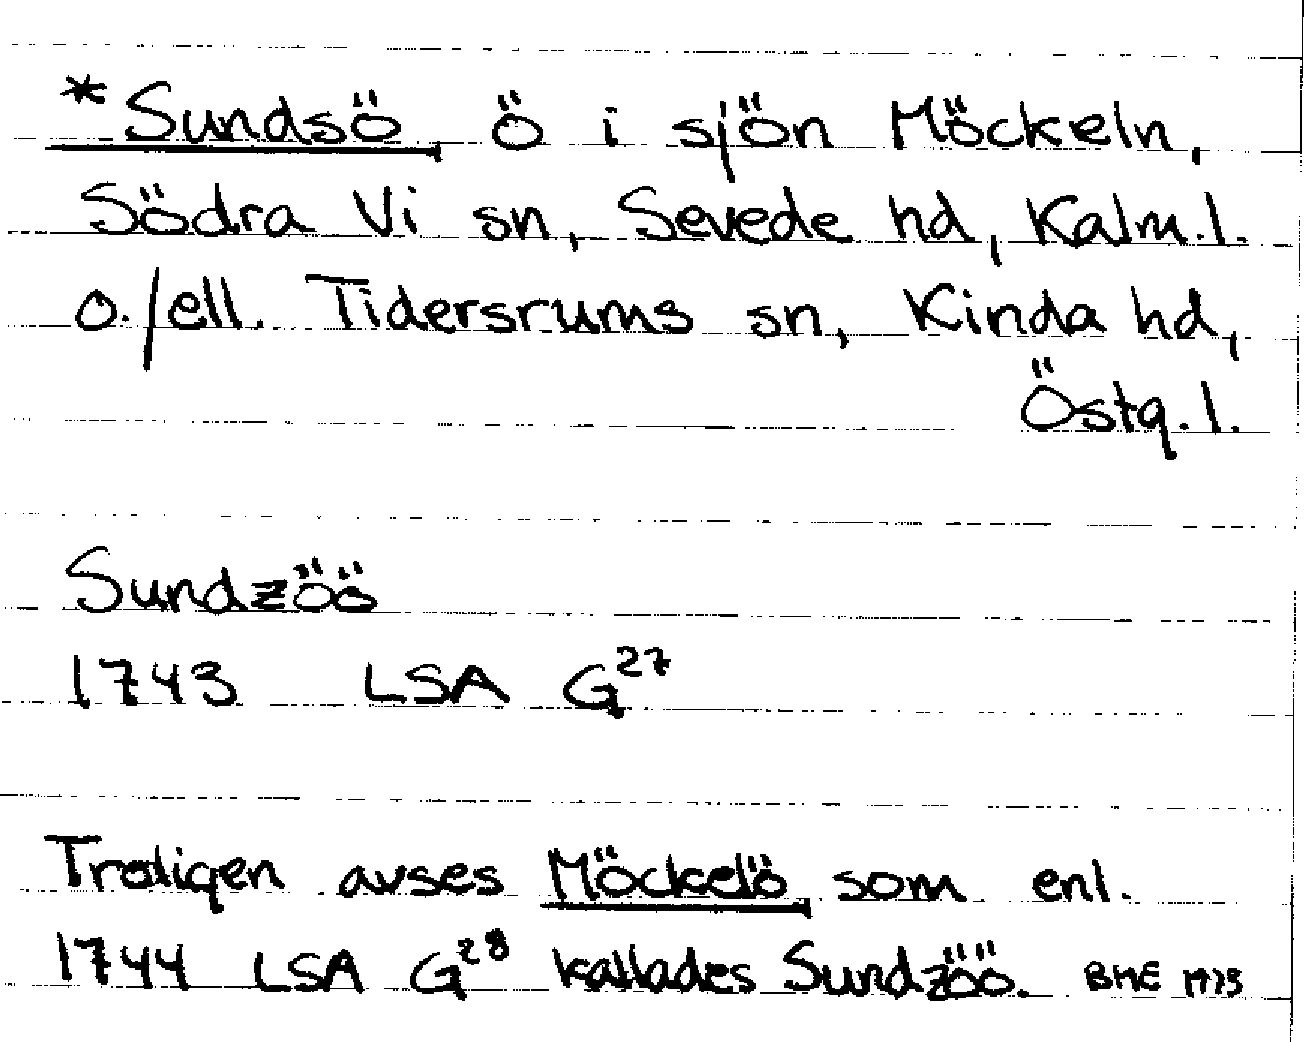 *Sundsö, Ö i sjön Möckeln,
Södra Vi sn, Sevede hd, Kalm.l.
o./ell. Tidersrums sn, Kinda hd,
Östg.l.
Sundzöö
1743 LSA G27
Troligen avses Möckelö, som enl.
1744 LSA G28 kallades Sundzöö. BME 1975